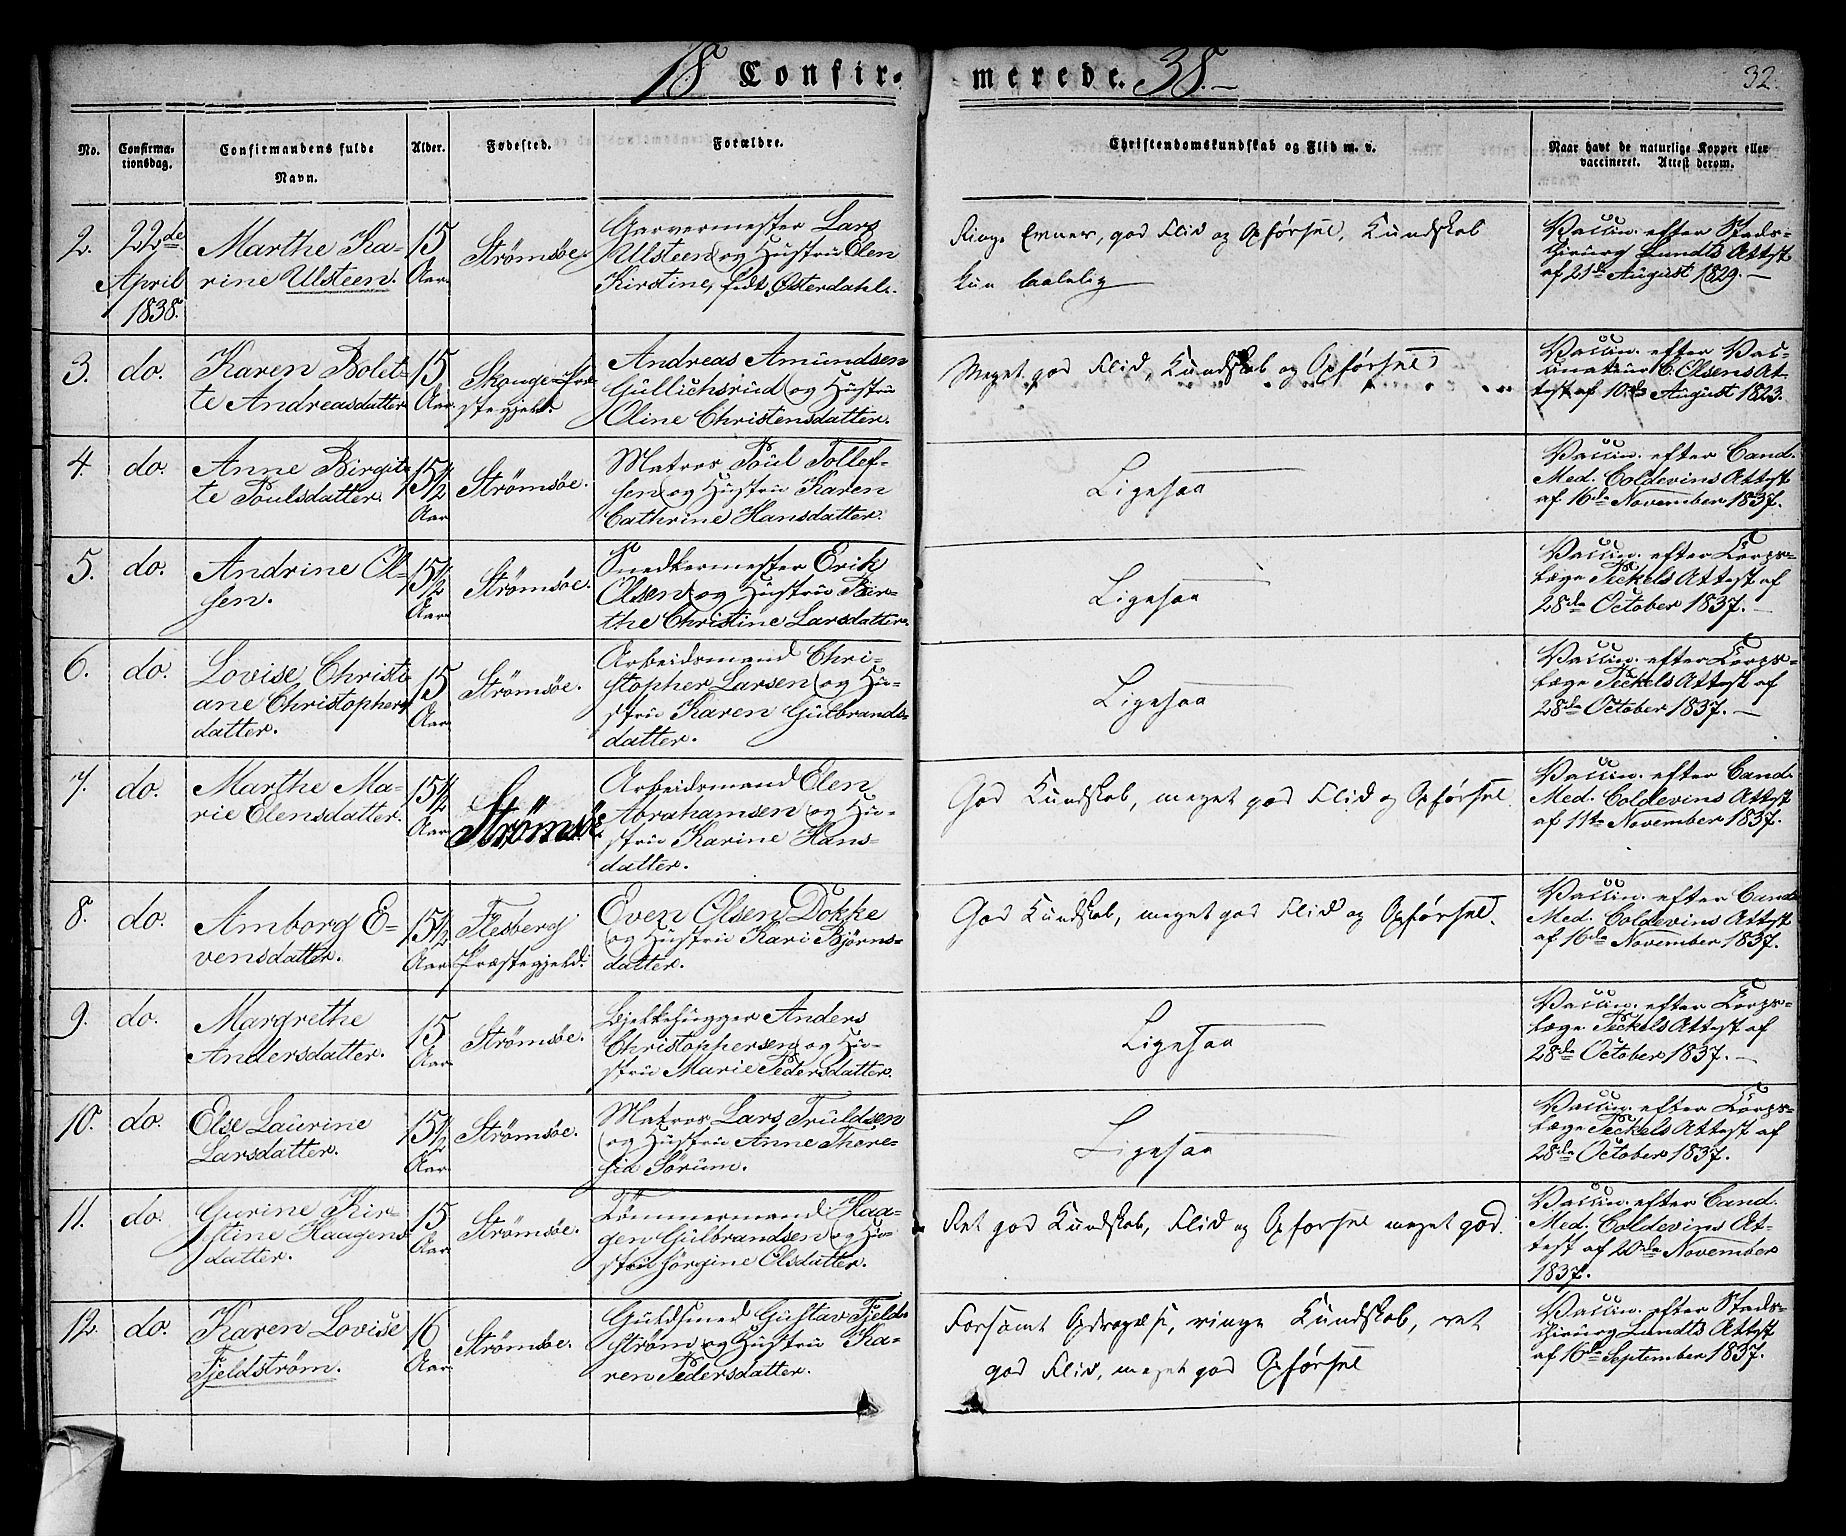 18 Confir-
merede. 38.
32.
No.
Confirma-
tionsdag.
Confirmandens fulde
Navn.
Alder.
Fødested.
Forældre.
Christendomskundskab og Flid m. v.
Naar havt de naturlige Kopper eller
vaccineret. Attest derom.
2.
22de
April
1838.
Marthe Ka-
rine Ulsteen.
15
Aar
Strömsöe.
Garvermester Lars
Ulsteen og Hustru Elen
Kirstine, født Østerdahl.
Ringe Evner, god Flid og Opførsel, Kundskab
kun taalelig
Vaccin. efter Stads-
chirurg Lundts Attest
af 21de August 1829.
3.
do.
Karen Bolet-
te Andreasdatter
15
Aar
Skouger Præ-
stegjeld.
Andreas Amundsen
Gullichsrud og Hustru
Oline Christensdatter.
Meget god Flid, Kundskab og Opførsel
Vaccin. efter Vac-
cinateur C. Olsens At-
test af 10de August 1823.
4.
do.
Anne Birgit-
te Poulsdatter.
15 1/2
Aar
Strömsöe.
Matros Poul Tollef-
sen og Hustru Karen
Cathrine Hansdatter.
Ligesaa
Vaccin. efter Cand.
Med. Coldevins Attest
af 16de November 1837.
5.
do.
Andrine Ol-
sen.
15 1/2
Aar
Strömsöe.
Snedkermester Erik
Olsen og Hustru Bir-
the Christine Larsdatter.
Ligesaa
Vaccin. efter Corps-
læge Peckels Attest af
28de October 1837.
6.
do.
Lovise Christi-
ane Christophers
datter.
15
Aar
Strömsöe.
Arbeidsmand Chri-
stopher Larsen og Hu-
stru Karen Gulbrands
datter.
Ligesaa
Vaccin. efter Corps-
læge Peckels Attest af
28de October 1837.
7.
do.
Marthe Ma-
rie Elensdatter.
15 1/2
Aar
Strömsöe
Arbeidsmand Elen
Abrahamsen og Hu-
stru Karine Hans-
datter.
God Kundskab, meget god Flid og Opførsel
Vaccin. efter Cand.
Med. Coldevins Attest
af 11te November 1837.
8.
do.
Amborg E-
vensdatter.
15 1/2
Aar
Flesberg
Præstegjeld.
Even Olsen Dokke
og Hustru Kari Bjørns-
datter.
God Kundskab, meget god Flid og Opførsel.
Vaccin. efter Cand.
Med. Coldevins Attest
af 16de November 1837.
9.
do.
Margrethe
Andersdatter.
15
Aar
Strömsöe.
Bjelkehugger Anders
Christophersen og Hu-
stru Marie Pedersdatter.
Ligesaa
Vaccin. efter Corps-
læge Peckels Attest af
28de October 1837.
10.
do.
Else Laurine
Larsdatter.
15 1/2
Aar
Strömsöe.
Matros Lars Truldsen
og Hustru Anne There-
sia Sørum.
Ligesaa
Vaccin. efter Corps-
læge Peckels Attest af
28de October 1837.
11.
do.
Gurine Kir-
stine Haagens
datter.
15
Aar
Strömsöe.
Tömmermand Haa-
gen Gulbrandsen og Hu-
stru Jörgine Olsdatter.
Ret god Kundskab, Flid og Opførsel meget god.
Vaccin. efter Cand.
Med. Coldevins At-
test af 20de November
1837.
12.
do.
Karen Lovise
Fjeldström.
16
Aar
Strömsöe.
Guldsmed Gustav Fjeld-
ström og Hustru Ka-
ren Pedersdatter.
Forsømt Opdragelse, ringe Kundskab, ret
god Flid, meget god Opførsel
Vaccin. efter Stads-
chirurg Lundts Attest
af 16de September 1837.